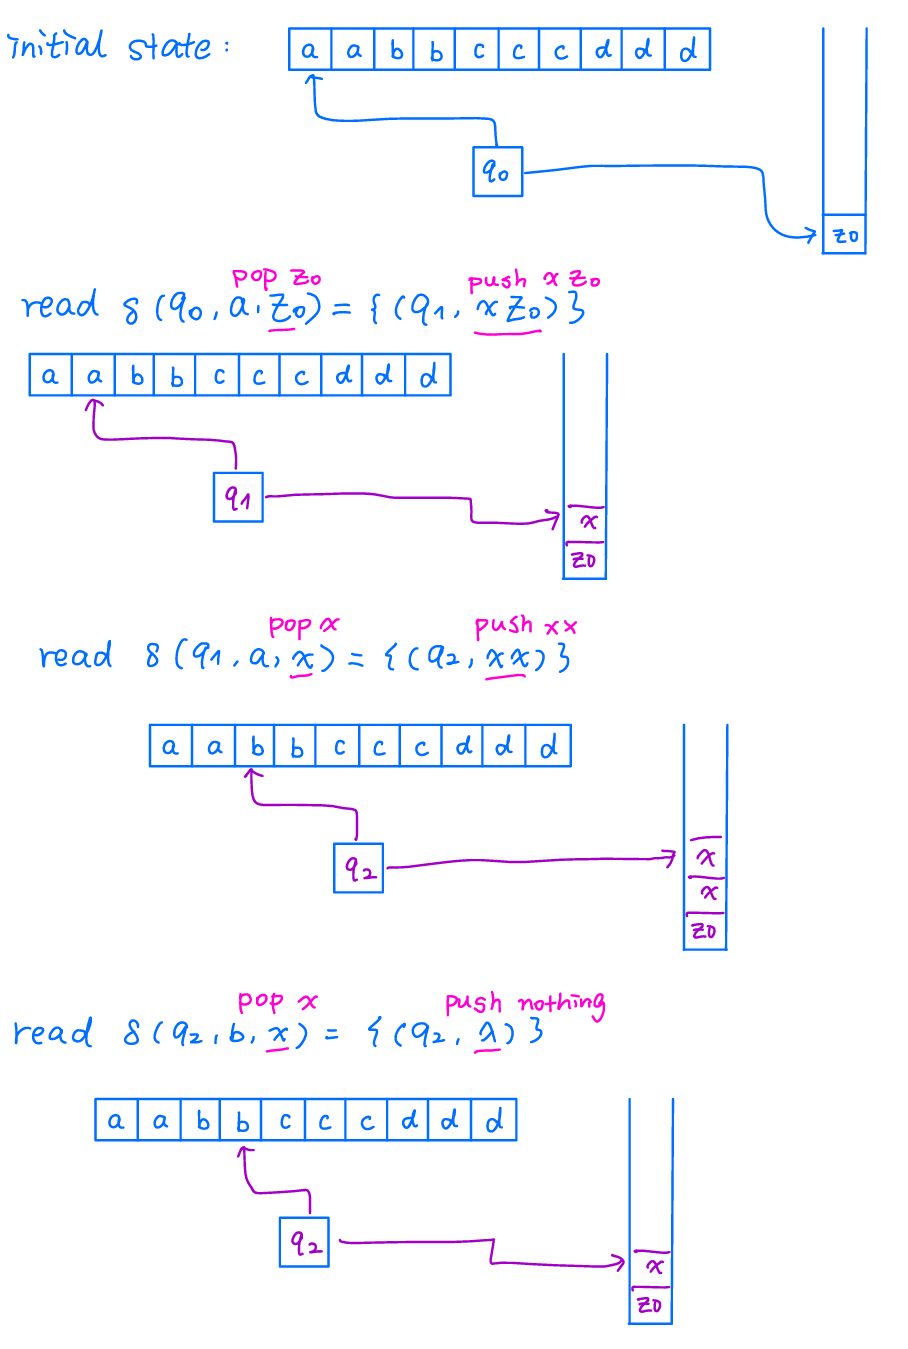 initial state :
a a b b c c c d d d
q0
z0
pop z0 push x z0
read δ(q0, a, z0) = {(q1, x z0)}
a a b b c c c d d d
q1
x
z0
pop x push xx
read δ(q1, a, x) = {(q2, xx)}
a a b b c c c d d d
q2
x
x
z0
pop x push nothing
read δ(q2, b, x) = {(q2, λ)}
a a b b c c c d d d
q2
x
z0